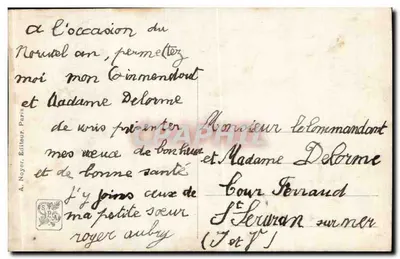 A l'occasion du
Nouvel an, permettez
moi mon Commandant
et Madame Delorme
de vous présenter
mes vœux de bonheur
et de bonne santé
j'y joins ceux de
ma petite sœur
royer aubry
Monsieur le Commandant
et Madame Delorme
Cour Ferraud
St Servan sur mer
(I et V)
A. Noyer, Editeur, Paris